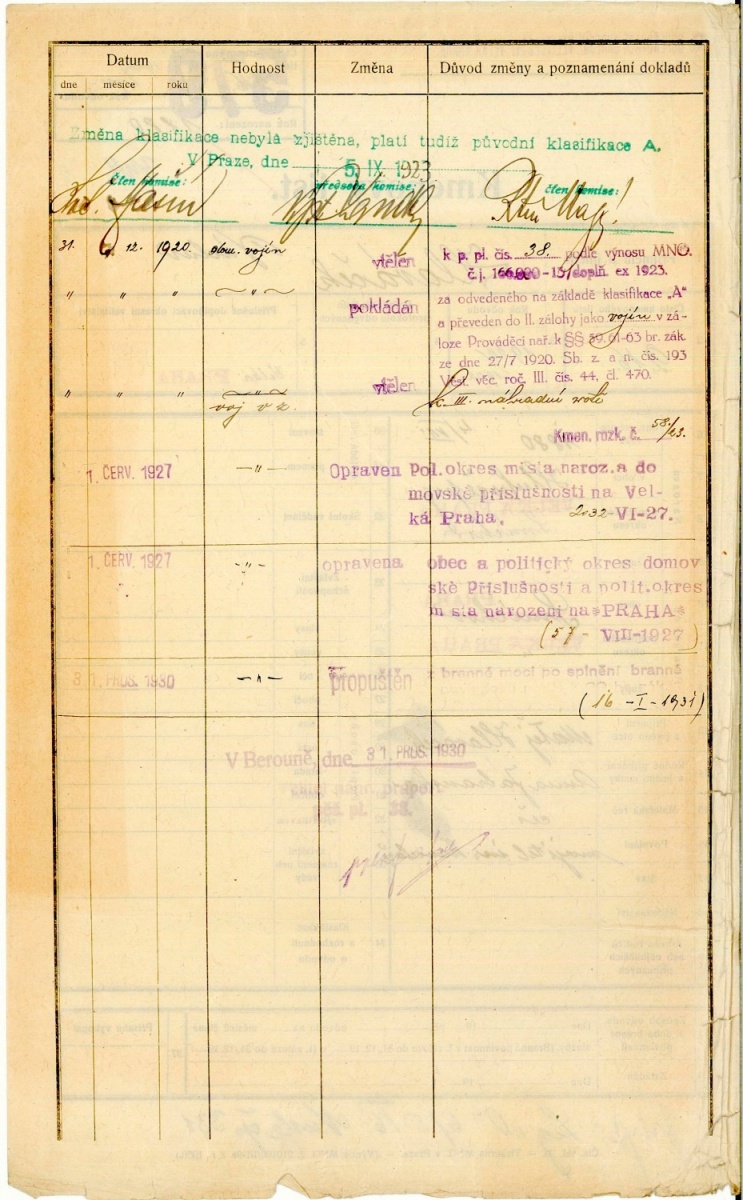 Datum
Hodnost
Změna
Důvod změny a poznamenání dokladů
dne měsíce roku
Změna klasifikace nebyla zjištěna, platí tudíž původní klasifikace A.
V Praze, dne 5. IX. 1923
člen komise: předseda komise: člen komise:
31. 12. 1920. vojín vtělen k p. pl. čís. 38. podle výnosu MNO.
č. j. -15/doplň. ex 1923.
" " " " pokládán za odvedeného na základě klasifikace „A"
a převeden do II. zálohy jako vojín v zá-
loze Prováděcí nař. k §§ 59, 61-63 br. zák.
ze dne 27/7 1920. Sb. z. a n. čís. 193
Věst. věc. roč. III. čís. 44, čl. 470.
" " " " vtělen k III. náhradní rotě
voj v z.
Kmen. rozk. č. 58/23.
1. ČERV. 1927 —"— Opraven Pol. okres místa naroz. a do
movské příslušnosti na Vel-
ká Praha. 2032 - VI-27.
1. ČERV. 1927 -"- opravena obec a politický okres domov
ské příslušnosti a polit. okres
místa narození na *PRAHA*
(57 - VIII-1927)
31. PROS. 1930 —"— propuštěn z branné moci po splnění branné
(16 -I-1931)
V Berouně, dne 31. PROS. 1930
pěš. pl. 38.